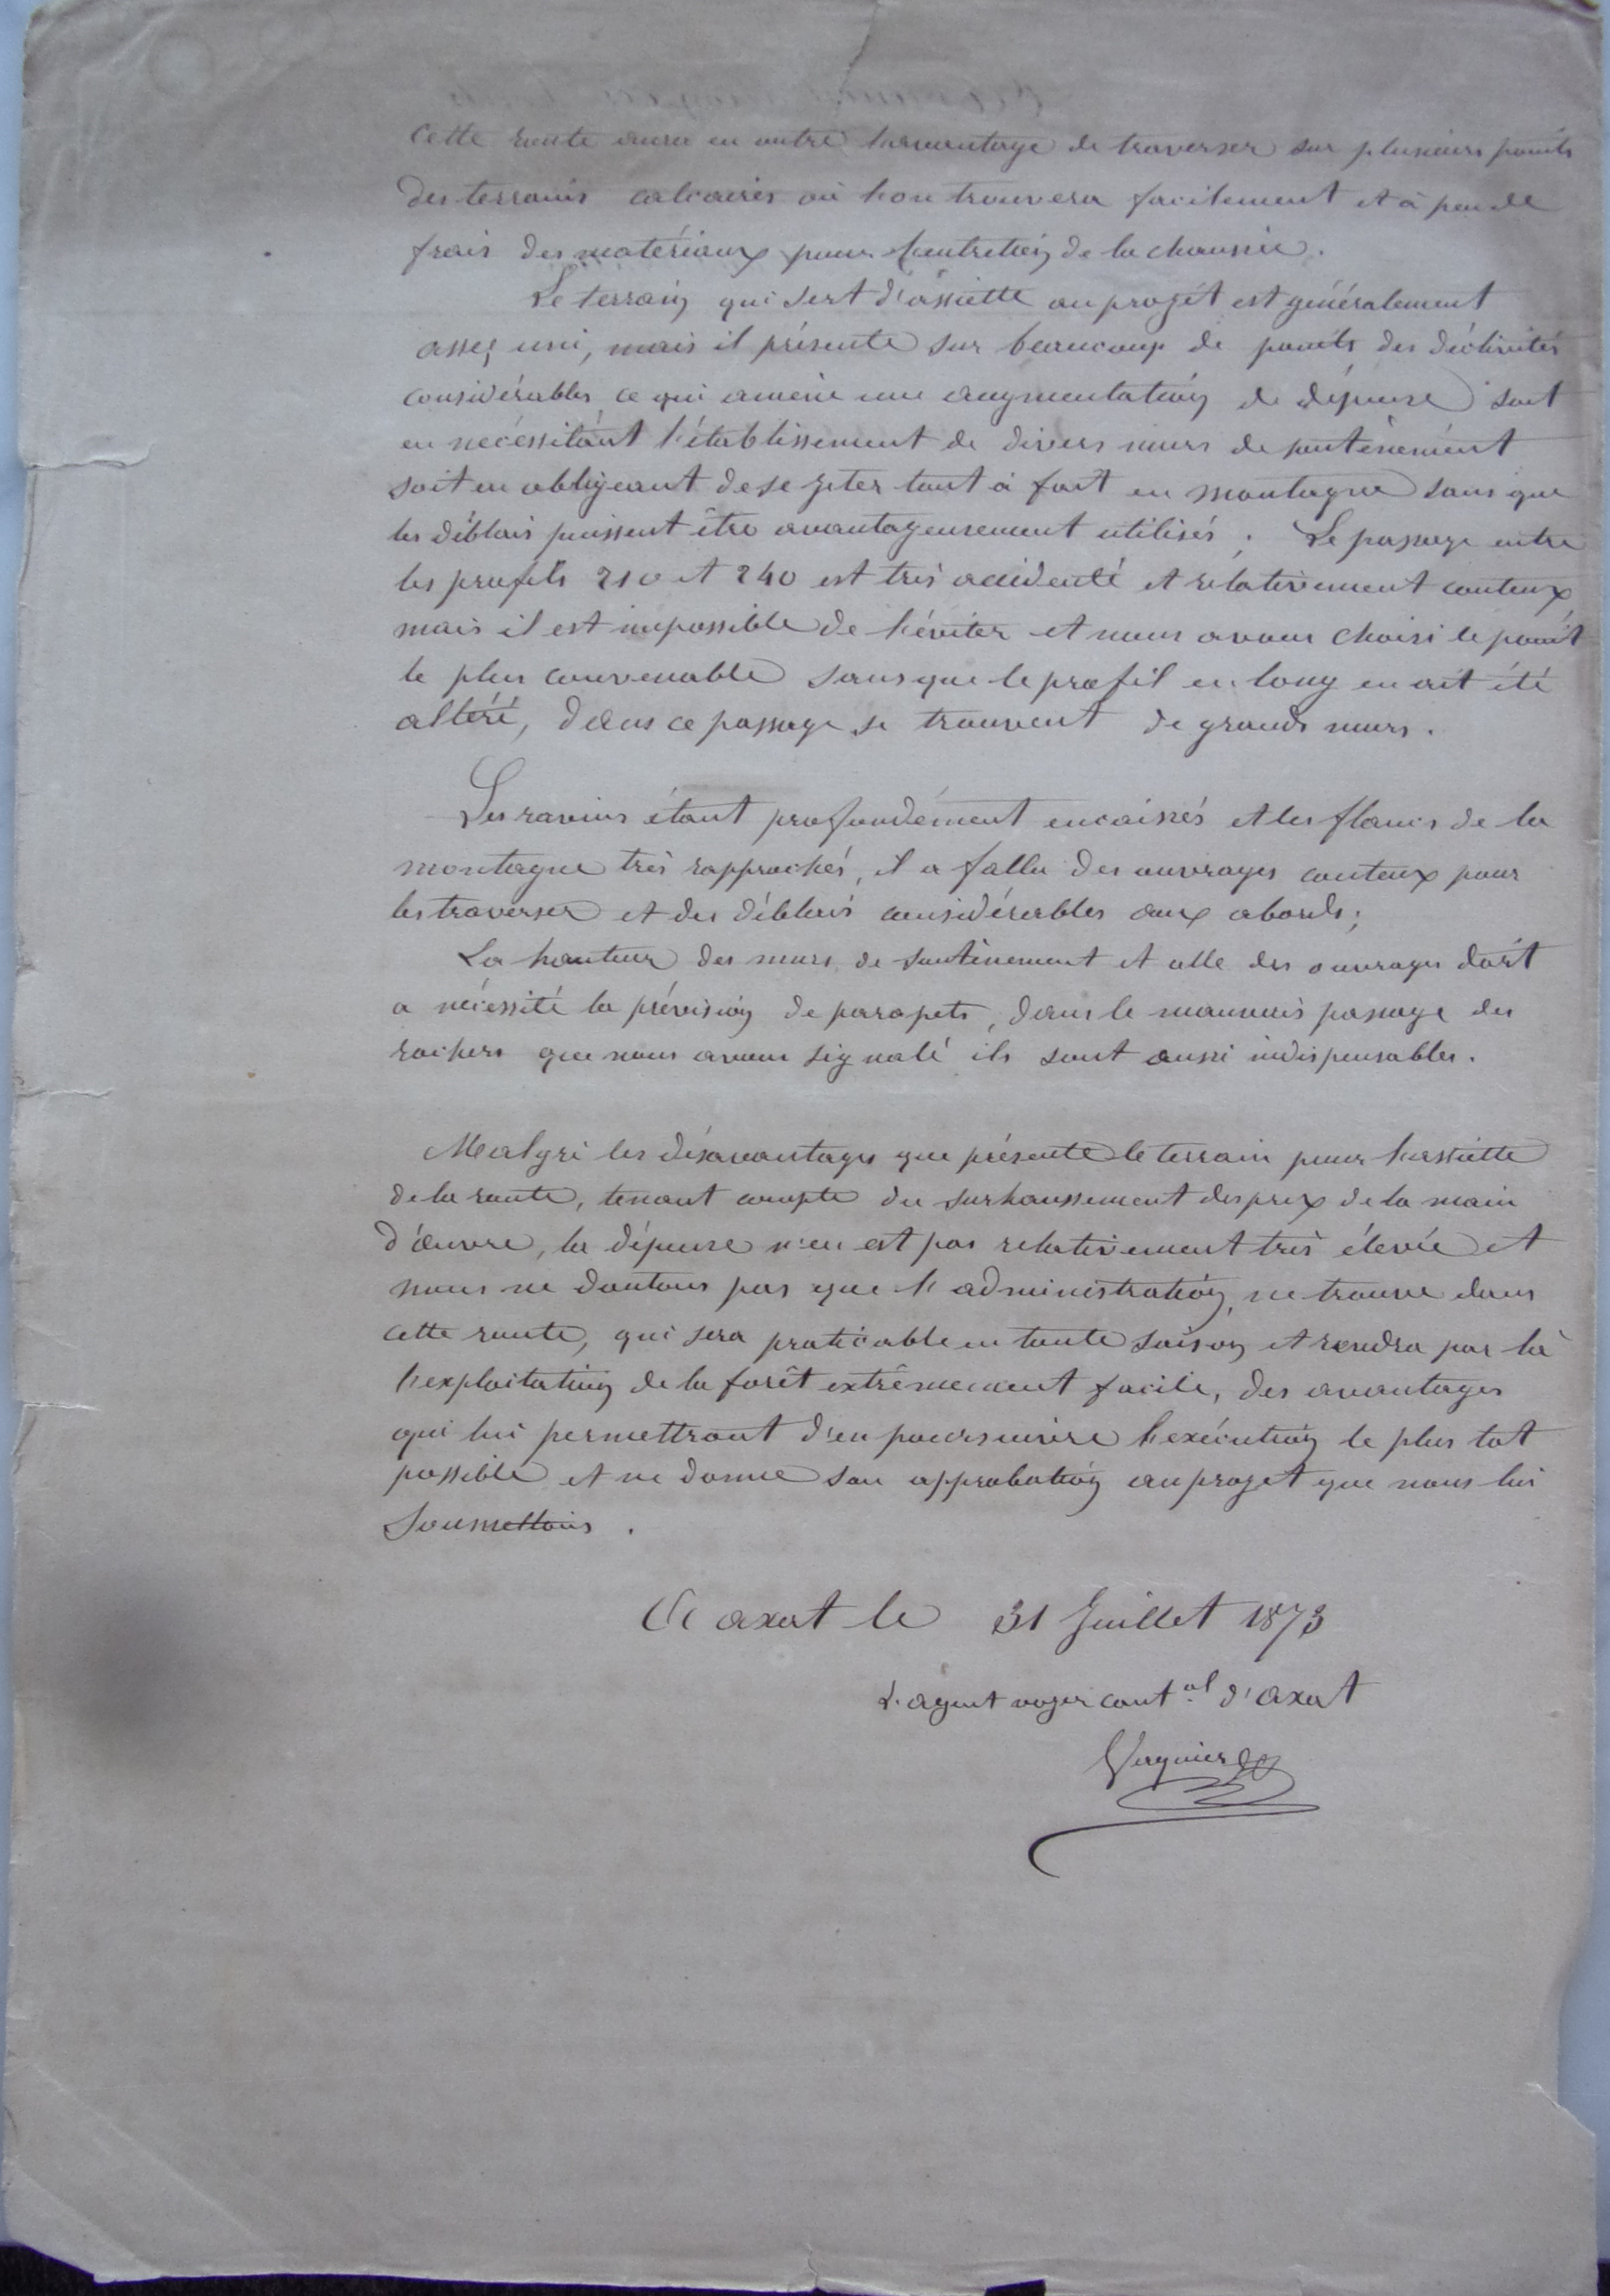 Cette route aura en outre l'avantage de traverser sur plusieurs points
des terrains calcaires où l'on trouvera facilement et à peu de
frais des matériaux pour l'entretien de la chaussée.
Le terrain qui sert d'assiette au projet est généralement
assez uni, mais il présente sur beaucoup de points des déclivités
considérables ce qui amène une augmentation de dépense soit
en nécessitant l'établissement de divers murs de soutènement
soit en obligeant de se jeter tout à fait en montagne sans que
les déblais puissent être avantageusement utilisés. Le passage entre
les profils 210 et 240 est très accidenté et relativement couteux
mais il est impossible de l'éviter et nous avons choisi le point
le plus convenable sans que le profil en long en ait été
altéré, dans ce passage se trouvent de grands murs.
Les ravins étant profondément encaissés et les flancs de la
montagne très rapprochés, il a fallu des ouvrages couteux pour
les traverser et des déblais considérables aux abords;
La hauteur des murs de soutènement et celle des ouvrages d'art
a nécessité la prévision de parapets, dans le mauvais passage des
rochers que nous avons signalé ils sont aussi indispensables.
Malgré les désavantages que présente le terrain pour l'assiette
de la route, tenant compte du surhaussement des prix de la main
d'œuvre, la dépense n'en est pas relativement très élevée et
nous ne doutons pas que l'administration, ne trouve dans
cette route, qui sera praticable en toute saison et rendra par là
l'exploitation de la forêt extrêmement facile, des avantages
qui lui permettront d'en poursuivre l'exécution le plus tot
possible et ne donne son approbation au projet que nous lui
soumettons.
A axat le 31 Juillet 1873
L'agent voyer cant.al d'axat
Vergnier